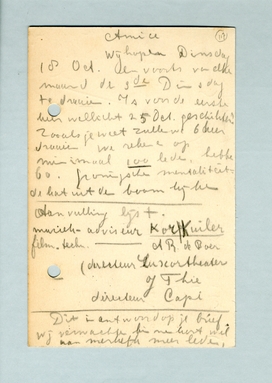 Amice
Wij hopen Dinsdag
18 Oct. den voorts van elke
maand de 3de Dinsdag
te draaien. Is voor de eerste
keer wellicht 25 Oct. geschikter?
Zooals je weet zullen wij 6 keer
draaien we rekenen op
minimaal 100 leden, hebben
60. Groningsche mentaliteit:
de kat uit de boom kijken
Aanvulling lijst.
muziek-adviseur Kor Kuiler
film. techn.
(directeur Luxortheater
of Thie
directeur Capit
Dit in antwoord op je brief.
Wij verwachten
meer leden.